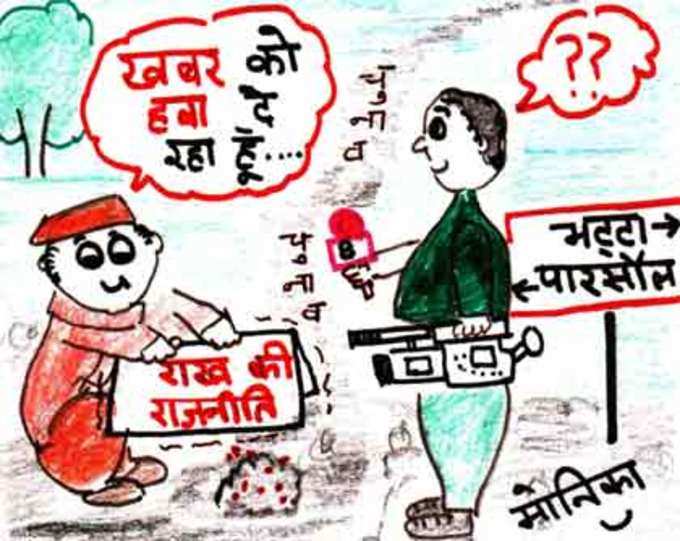 खबर को
हवा दे
रहा हूँ....
??
चुनाव
चुनाव
B
भट्टा→
←पारसौल
राख की
राजनीति
मोनिका